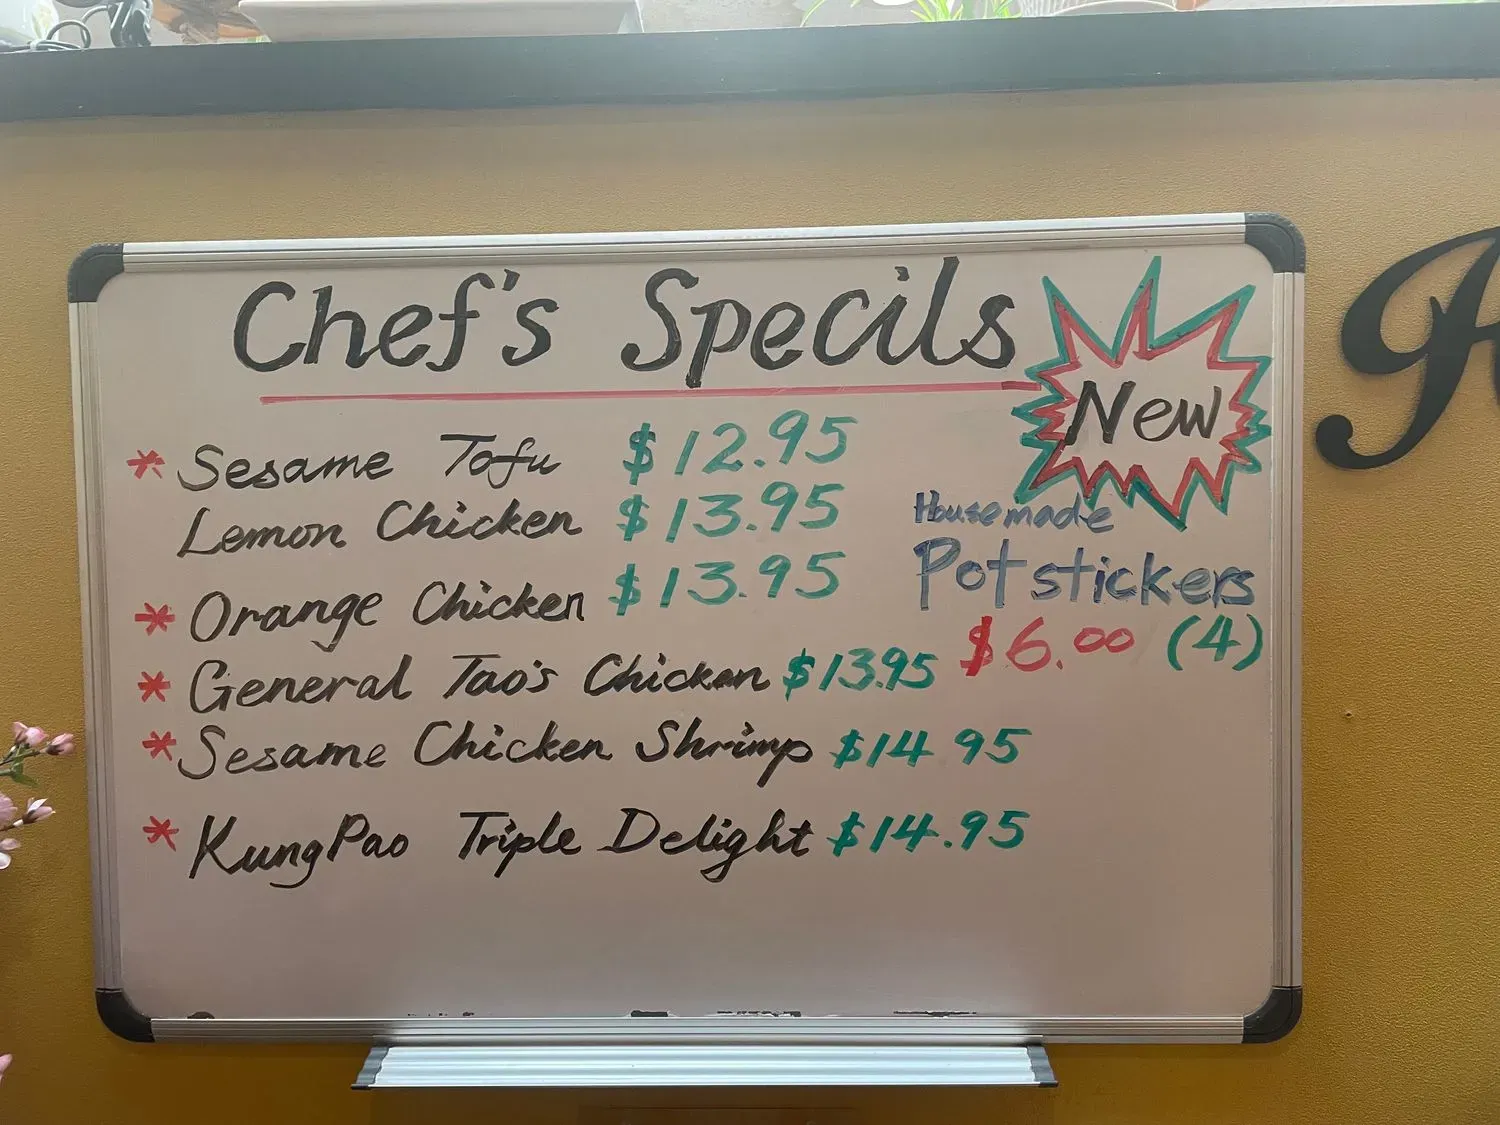 Chef's Specils
New
* Sesame Tofu $12.95
Lemon Chicken $13.95
* Orange Chicken $13.95
* General Tao's Chicken $13.95
* Sesame Chicken Shrimp $14.95
* KungPao Triple Delight $14.95
Housemade
Potstickers
$6.00 (4)